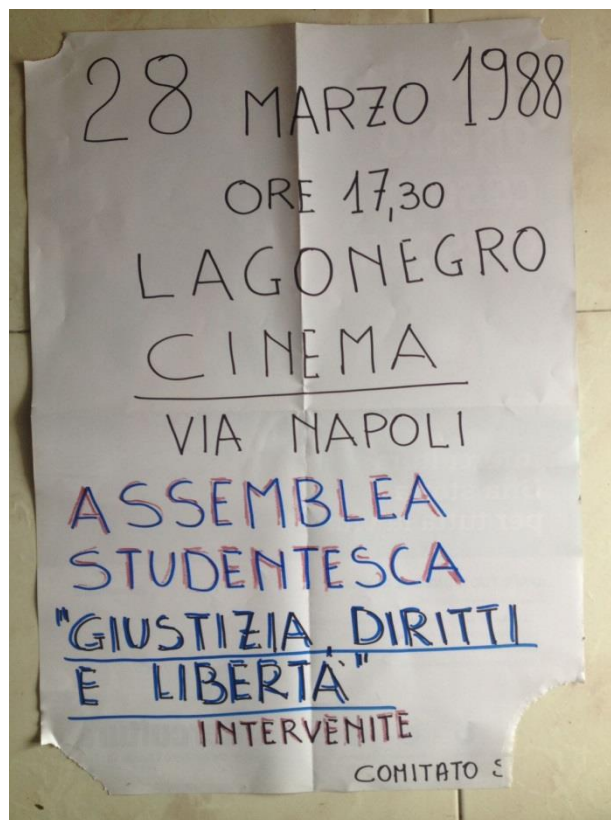 28 MARZO 1988
ORE 17,30
LAGONEGRO
CINEMA
VIA NAPOLI
ASSEMBLEA
STUDENTESCA
"GIUSTIZIA, DIRITTI
E LIBERTÀ"
INTERVENITE
COMITATO